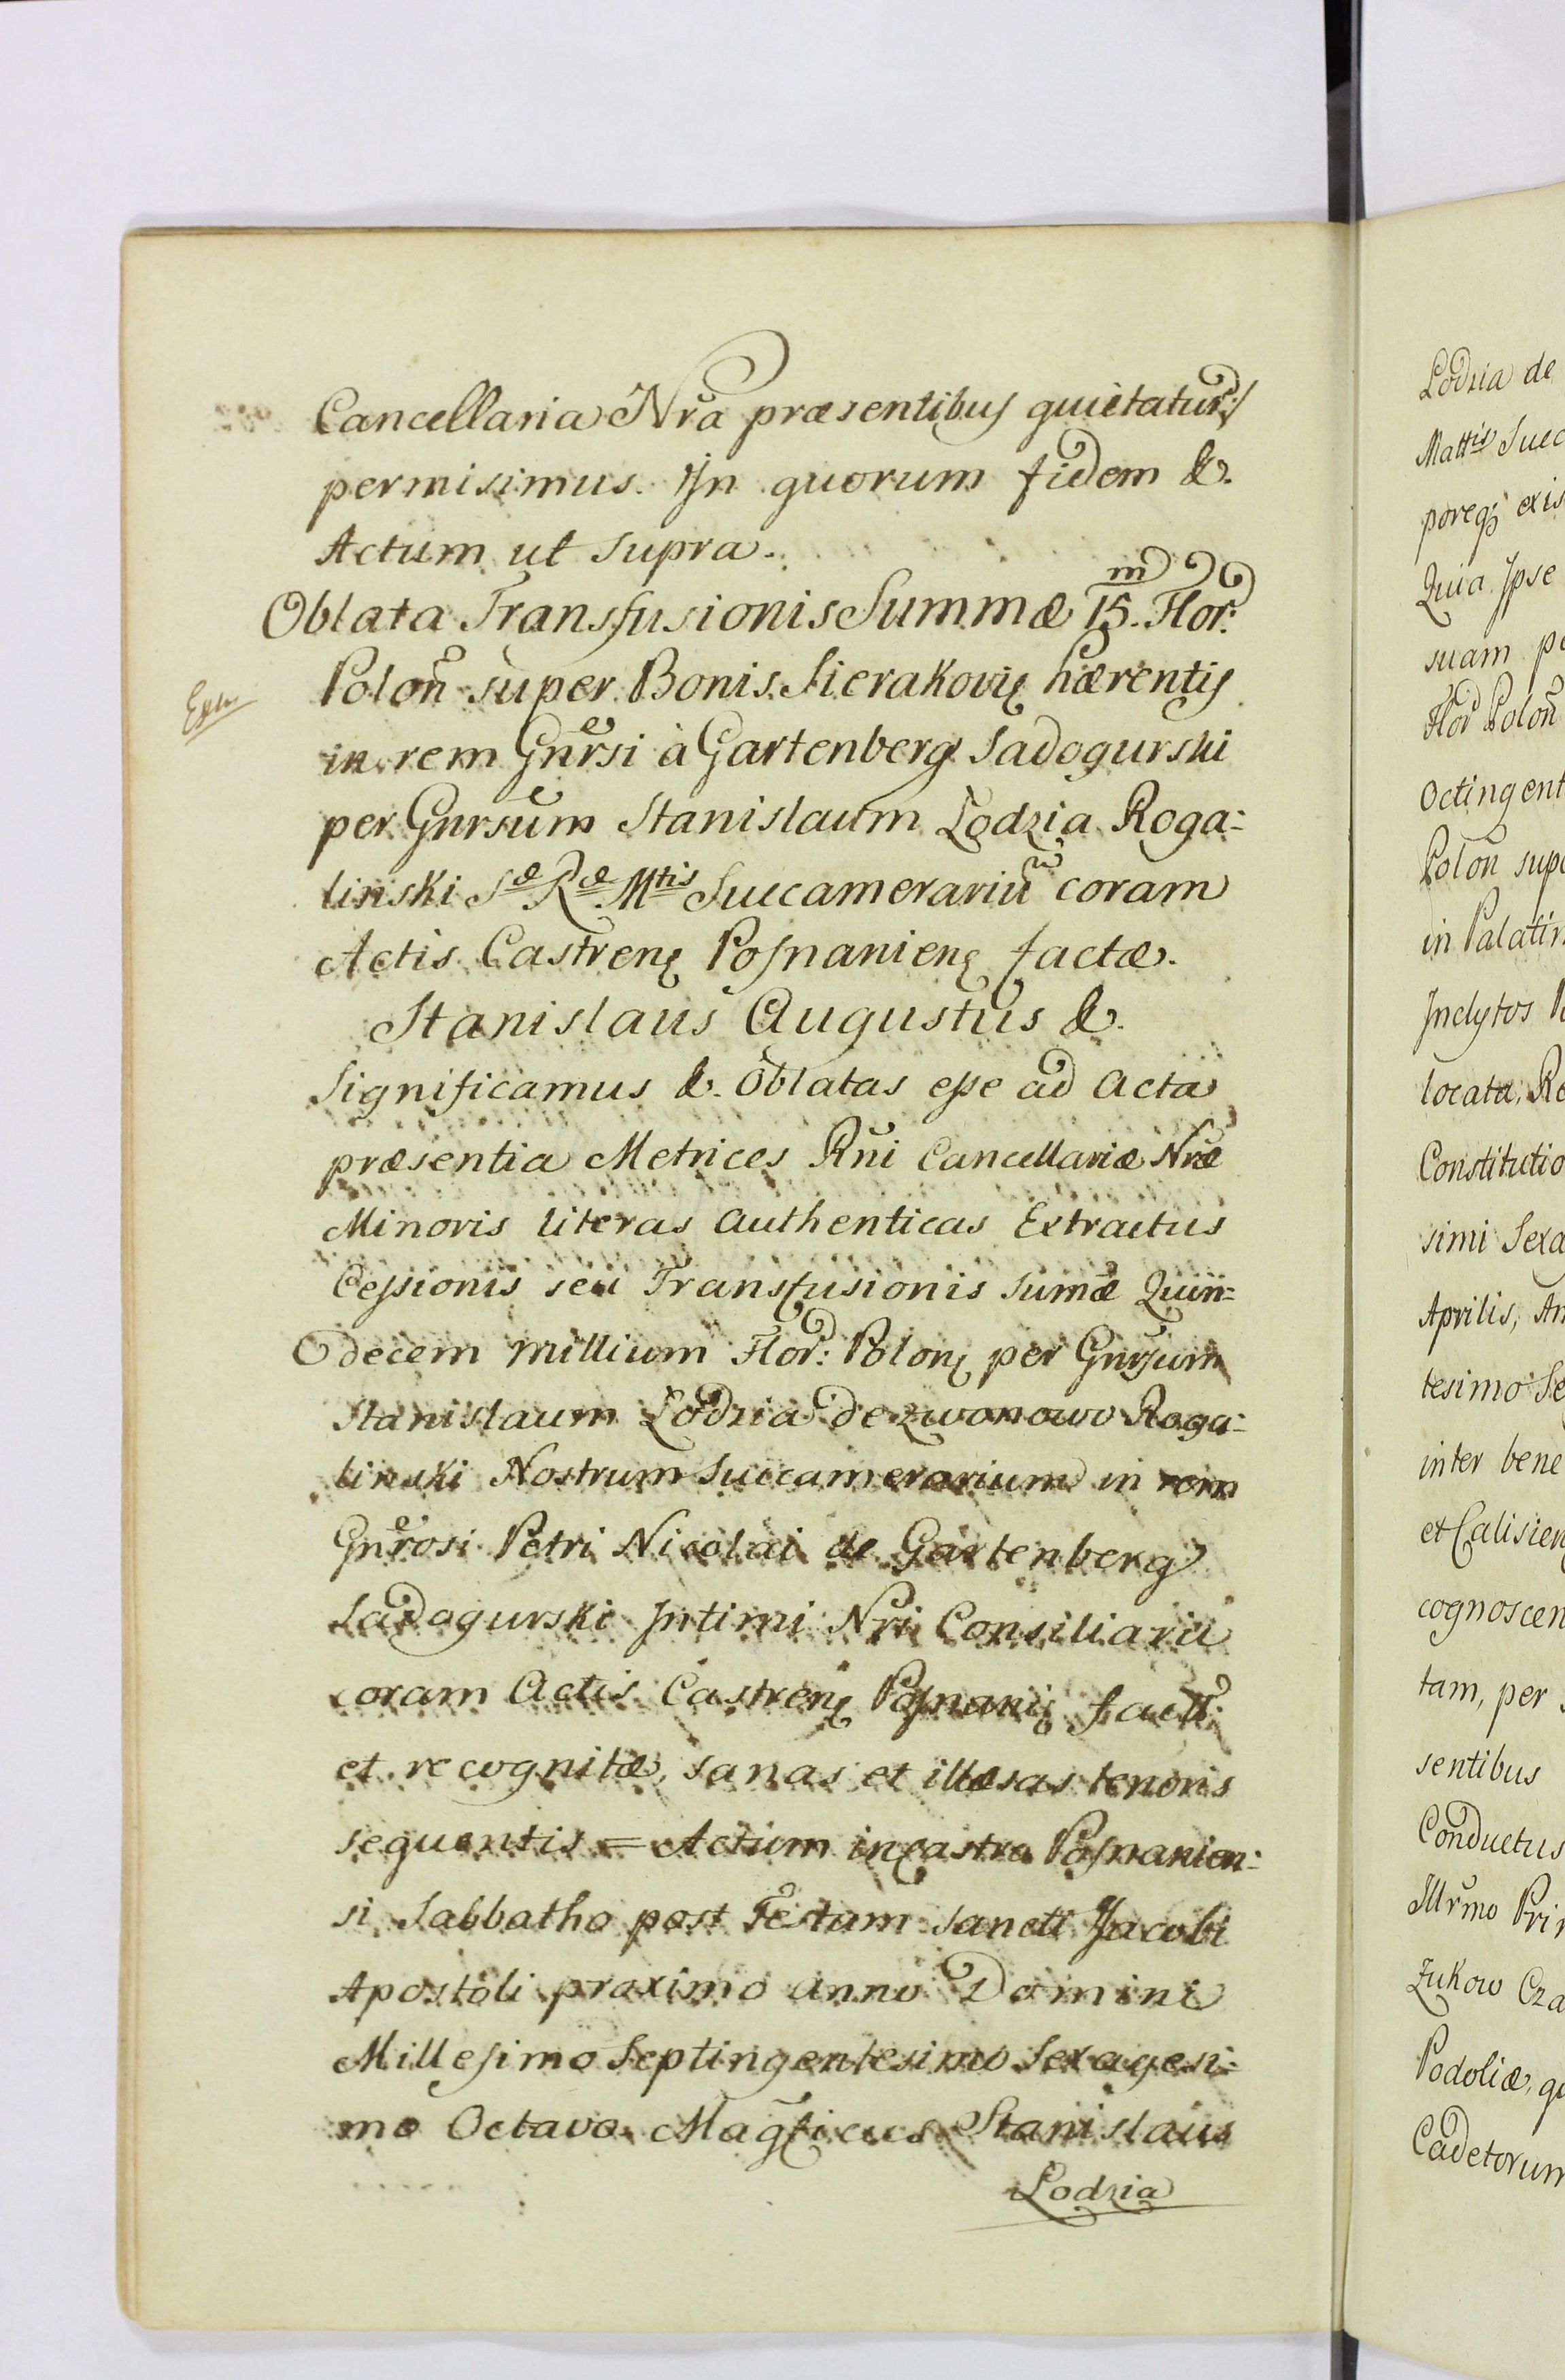 Cancellaria Nra præsentibus quietatur/
permisimus. In quorum fidem &.
Actum ut supra.
Oblata Transfusionis Summæ 15.m Flor:
Polon super Bonis Sierakovię hærentis
Exn
in rem Gnrsi à Gartenberg Sadogurski
per Gnrsum Stanislaum Lodzia Roga=
linski Sæ Ræ Mtis Succamerariũ coram
Actis Castrenę Posnanienę factæ.
Stanislaus Augustus &.
Significamus &. Oblatas esse ad Acta
præsentia Metrices Rni Cancellariæ Nræ
Minoris literas authenticas Extractus
Cessionis seu Transfusionis Sumæ Quin=
decem millium Flor: Polonę per Gnrsum
Stanislaum Lodzia de Zwonowo Roga=
linski Nostrum Succamerarium in rem
Gnrosi Petri Nicolai de Gartenberg
Sadogurski Intimi Nri Consiliarii
coram Actis Castrenę Posnanię factæ
et recognitæ, sanas et illæsas tenoris
sequentis = Actum in Castro Posnanien=
si Sabbatho post Festum Sancti Jacobi
Apostoli proximo anno Domini
Millesimo Septingentesimo Sexagesi=
mo Octavo. Magficus Stanislaus
Lodzia
Lodzia de
Mattis Succ
poreqȝ exis
Quia Ipse
suam pe
Flor Polon
Octingent
Polon supe
in Palatin
Inclytos R
locata, Re
Constitutio
simi Sexa
Aprilis, An
tesimo Se
inter bene
et Calisienę
cognoscen
tam, per
sentibus
Conductus
Illrmo Prin
Zukow Cza
Podoliæ, qu
Cadetorum